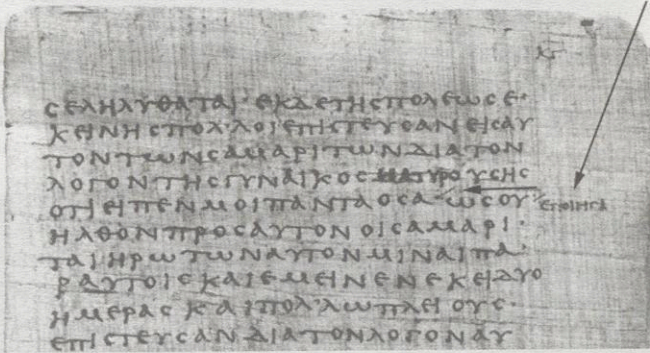 ϹΕΛΗΛΥΘΑΤΑΙ· ΕΚΔΕΤΗϹΠΟΛΕΩϹΕ·
ΚΕΙΝΗϹΠΟΛ·ΛΟΙΕΠΙϹΤΕΥϹΑΝΕΙϹΑΥ
ΤΟΝΤΩΝϹΑΜΑΡΙΤΩΝΔΙΑΤΟΝ
ΛΟΓΟΝΤΗϹΓΥΝΑΙΚΟϹΜΑΤΥΡΟΥϹΗϹ
ΟΤΙΕΙΠΕΝΜΟΙΠΑΝΤΑΟϹΑ·ΩϹΟΥ
ΕΠΟΙΗϹΑ
ΗΛΘΟΝΠΡΟϹΑΥΤΟΝΟΙϹΑΜΑΡΙ·
ΤΑΙΗΡΩΤΩΝΑΥΤΟΝΜΙΝΑΙΠΑ·
ΡΑΥΤΟΙϹΚΑΙΕΜΕΙΝΕΝΕΚΕΙΔΥΟ
ΗΜΕΡΑϹΚΑΙΠΟΛ·ΛΩΠΛΕΙΟΥϹ·
ΕΠΙϹΤΕΥϹΑΝΔΙΑΤΟΝΛΟΓΟΝΑΥ